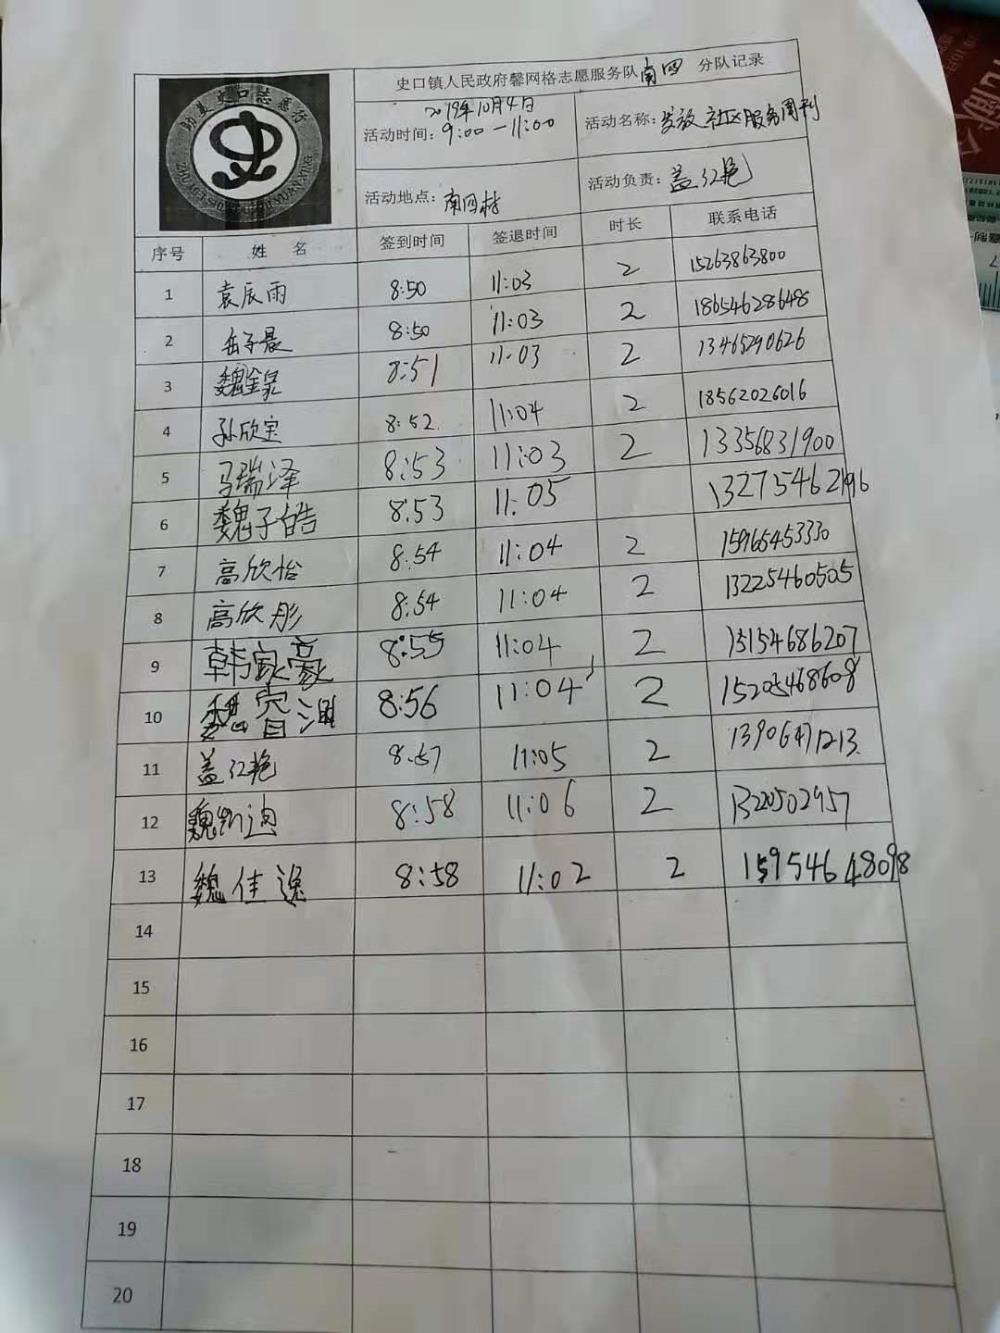 助美史口志愿行
ZHU MEI SHI KOU ZHI YUAN XING
史口镇人民政府馨网格志愿服务队南四 分队记录
2019年10月4日
活动时间：9:00-11:00 活动名称：发放社区服务周刊
活动地点：南四村 活动负责：盖红艳
序号 姓名 签到时间 签退时间 时长 联系电话
1 袁辰雨 8:50 11:03 2 15263863800
2 岳子晨 8:50 11:03 2 186546286485
3 魏金泉 8:51 11:03 2 13465290626
4 孙欣宝 8:52 11:04 2 18562026016
5 马瑞泽 8:53 11:03 2 13356831900
6 魏子皓 8:53 11:05 13275462196
7 高欣怡 8:54 11:04 2 15965453330
8 高欣彤 8:54 11:04 2 13225460505
9 韩家豪 8:55 11:04 2 15154686207
10 魏 8:56 11:04 2 15205468608
11 盖红艳 8:57 11:05 2 13906471213
12 魏凯迪 8:58 11:06 2 1320502957
13 魏佳逸 8:58 11:02 2 15954648098
14
15
16
17
18
19
20